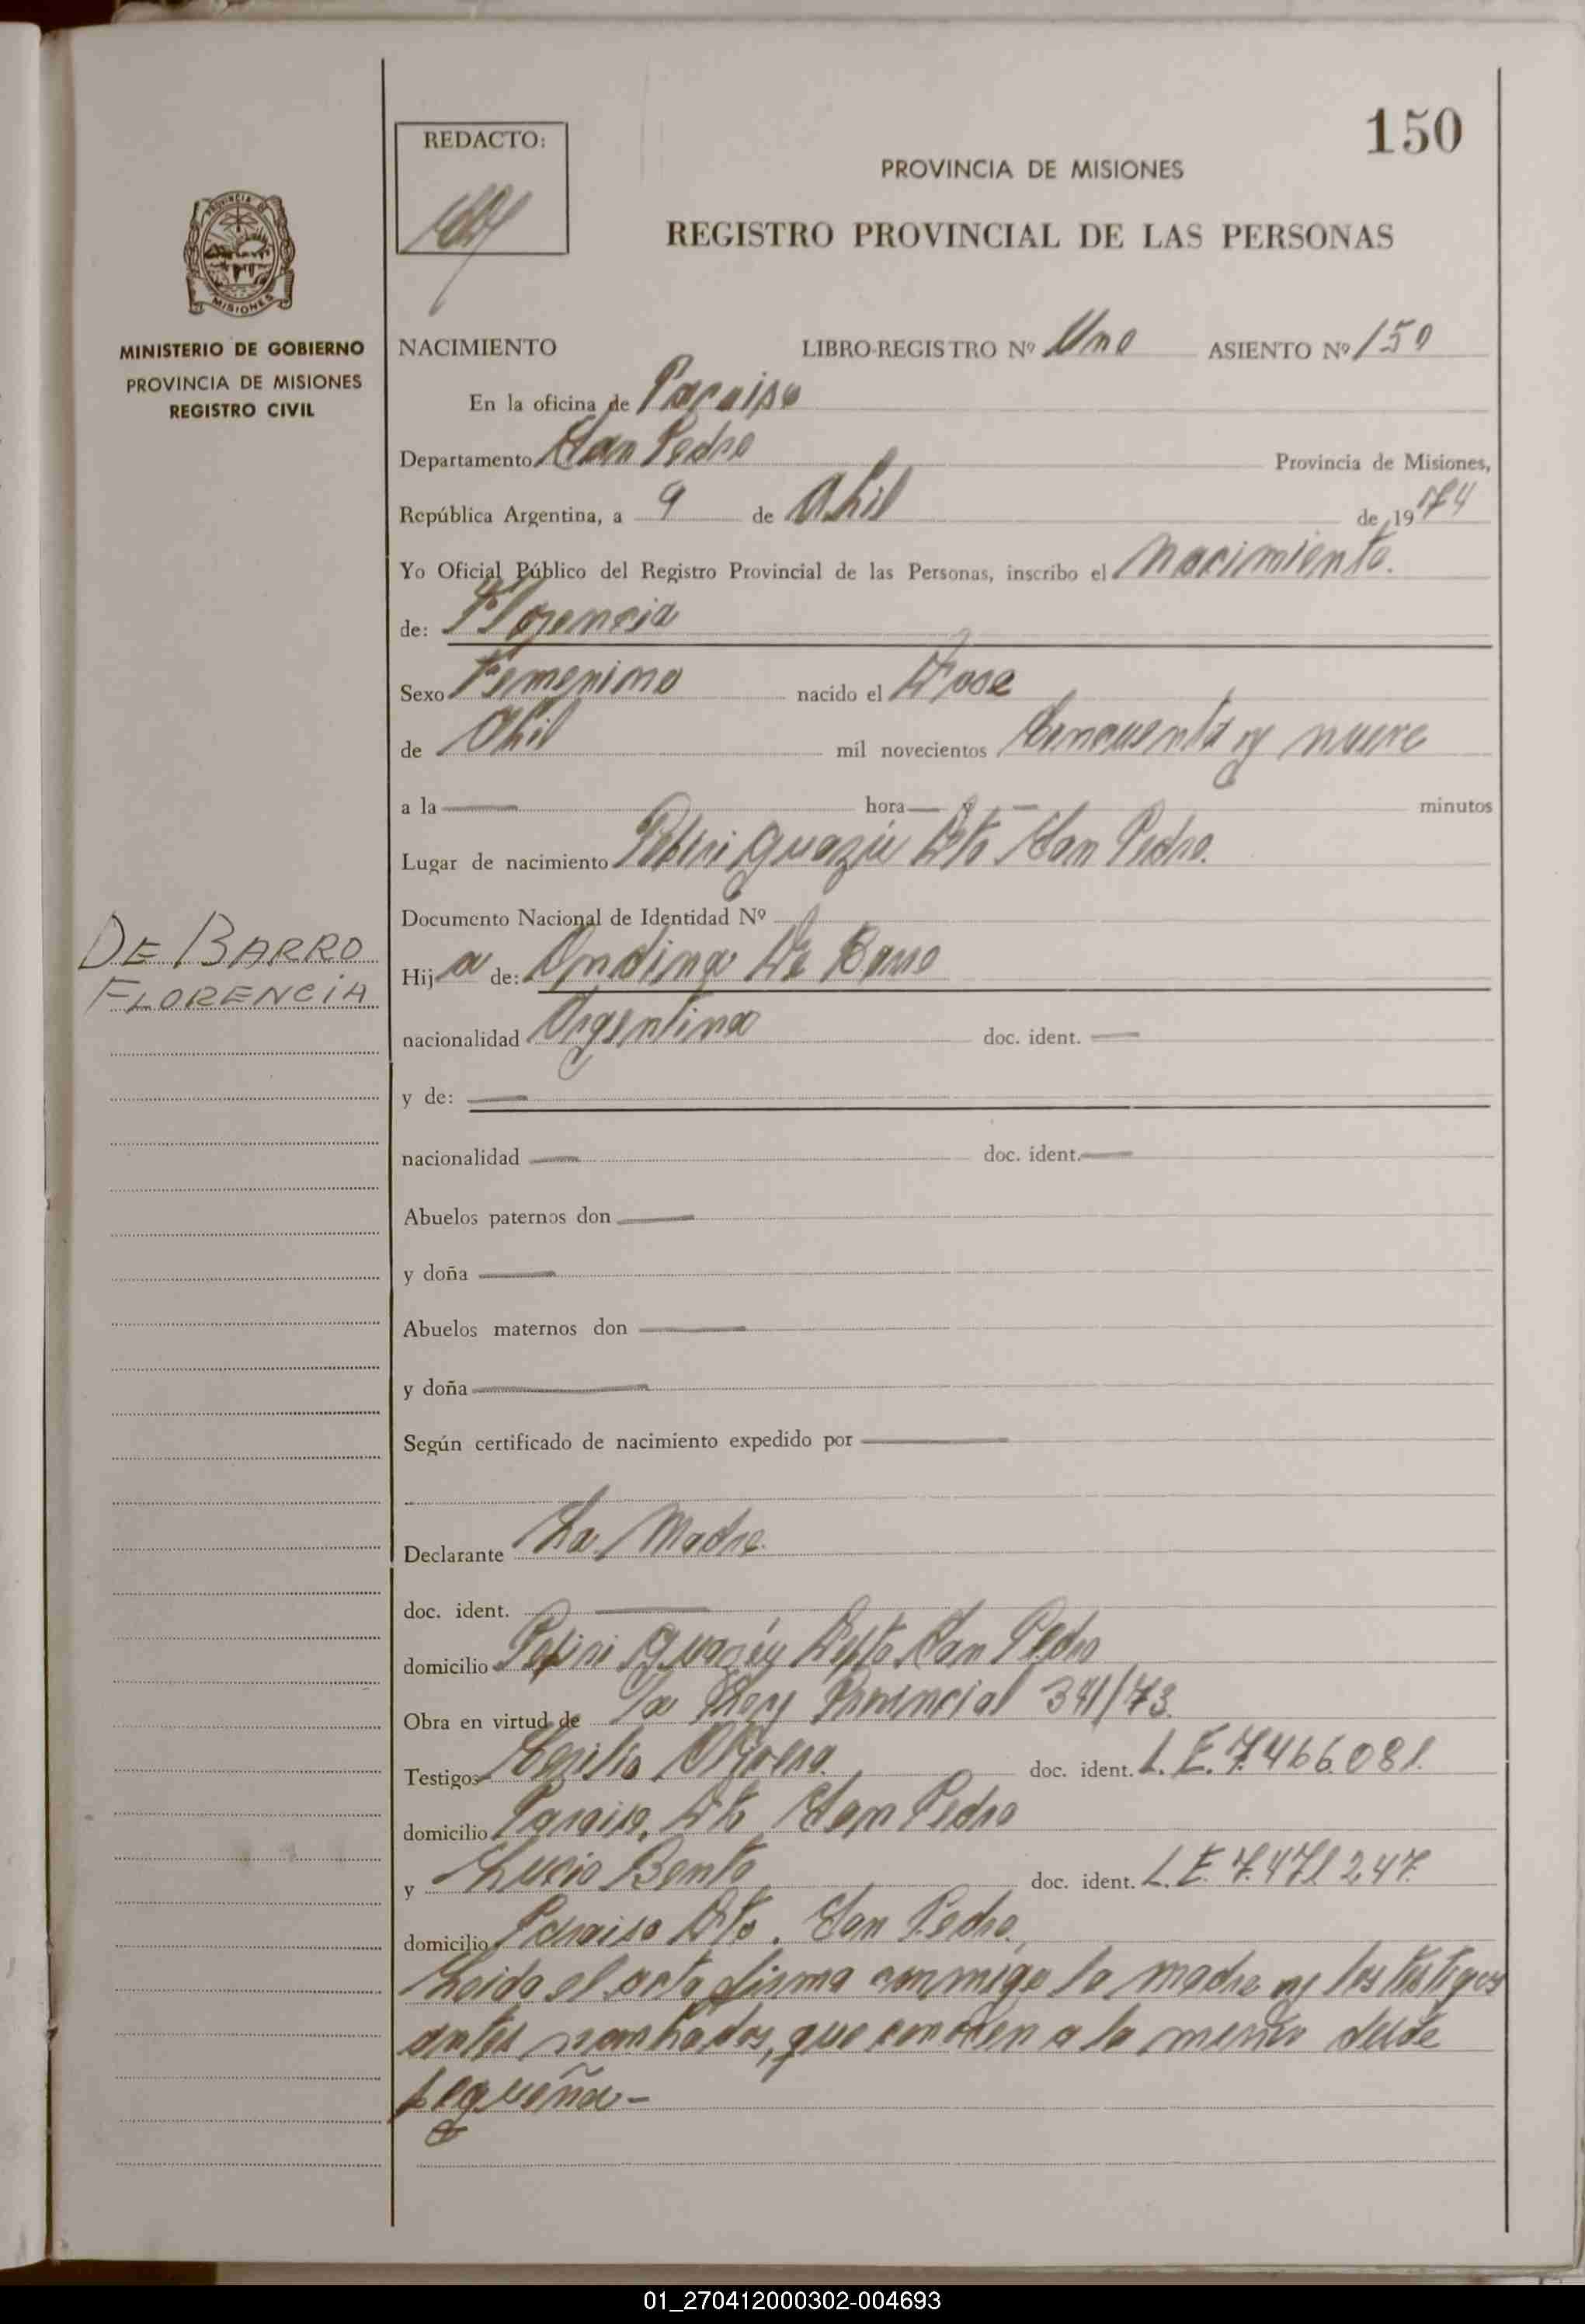 150
REDACTO:
PROVINCIA DE MISIONES
REGISTRO PROVINCIAL DE LAS PERSONAS
PROVINCIA DE
MISIONES
MINISTERIO DE GOBIERNO
PROVINCIA DE MISIONES
REGISTRO CIVIL
NACIMIENTO LIBRO-REGISTRO Nº Uno ASIENTO Nº 150
En la oficina de Paraiso
Departamento San Pedro Provincia de Misiones,
República Argentina, a 9 de Abril de 1974
Yo Oficial Público del Registro Provincial de las Personas, inscribo el Nacimiento.
de: Florencia
Sexo Femenino nacido el Doce
de Abril mil novecientos Cincuenta y nueve
a la — hora — y — minutos
Lugar de nacimiento Guazú Dto San Pedro.
Documento Nacional de Identidad Nº
DE BARRO
FLORENCIA
Hija de: Ondina De Barro
nacionalidad Argentina doc. ident. —
y de: —
nacionalidad — doc. ident. —
Abuelos paternos don —
y doña —
Abuelos maternos don —
y doña —
Según certificado de nacimiento expedido por —
Declarante La Madre
doc. ident. —
domicilio Guazú Depto San Pedro
Obra en virtud de la Ley Provincial 341/73.
Testigos doc. ident. L.E. 7.466.081.
domicilio Paraiso, Dto San Pedro
y Lucio Bento doc. ident. L.E. 7.471.247.
domicilio Paraiso Dto. San Pedro.
Leida el acta firma conmigo la madre y los testigos
antes nombrados, que conocen a la menor desde
pequeña-
01_270412000302-004693